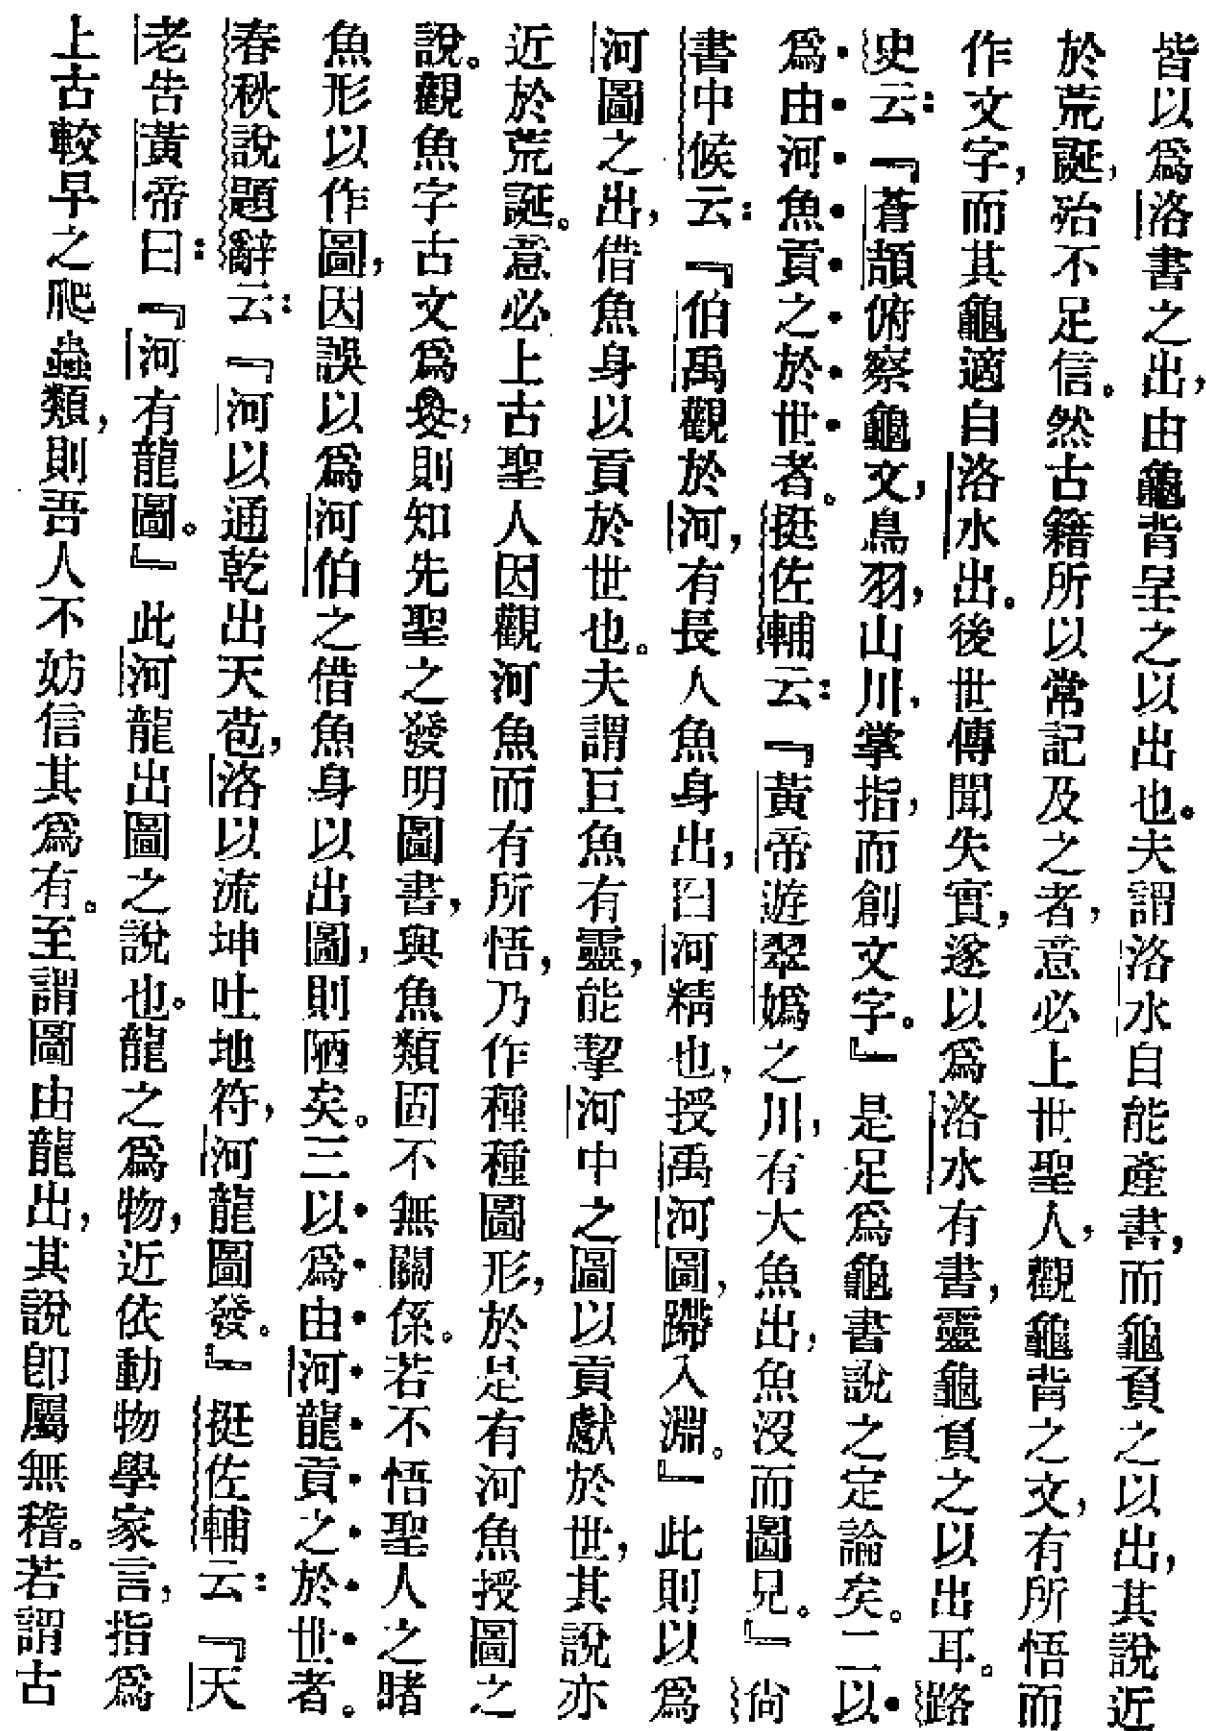 皆以爲洛書之出，由龜背呈之以出也。夫謂洛水自能產書，而龜負之以出，其說近
於荒誕，殆不足信。然古籍所以常記及之者，意必上世聖人，觀龜背之文，有所悟而
作文字，而其龜適自洛水出。後世傳聞失實，遂以爲洛水有書，靈龜負之以出耳。路
史云：『蒼頡俯察龜文，鳥羽，山川，掌指，而創文字。』是足爲龜書說之定論矣。二以
爲由河魚貢之於世者。挺佐輔云：『黃帝遊翠嬀之川，有大魚出，魚沒而圖見。』尙
書中候云：『伯禹觀於河，有長人魚身出，曰河精也，授禹河圖，蹛入淵。』此則以爲
河圖之出，借魚身以貢於世也。夫謂巨魚有靈，能挈河中之圖以貢獻於世，其說亦
近於荒誕。意必上古聖人因觀河魚而有所悟，乃作種種圖形，於是有河魚授圖之
說。觀魚字古文爲，則知先聖之發明圖書，與魚類固不無關係。若不悟聖人之睹
魚形以作圖，因誤以爲河伯之借魚身以出圖，則陋矣。三以爲由河龍貢之於世者。
春秋說題辭云：『河以通乾出天苞，洛以流坤吐地符，河龍圖發。』挺佐輔云：『天
老告黃帝曰：『河有龍圖。』此河龍出圖之說也。龍之爲物，近依動物學家言，指爲
上古較早之爬蟲類，則吾人不妨信其爲有。至謂圖由龍出，其說卽屬無稽。若謂古